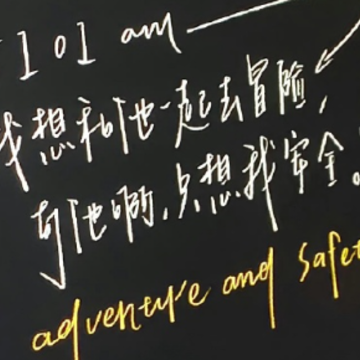 101 am
我想和他一起去冒险,
可他啊,只想我安全。
adventure and safet